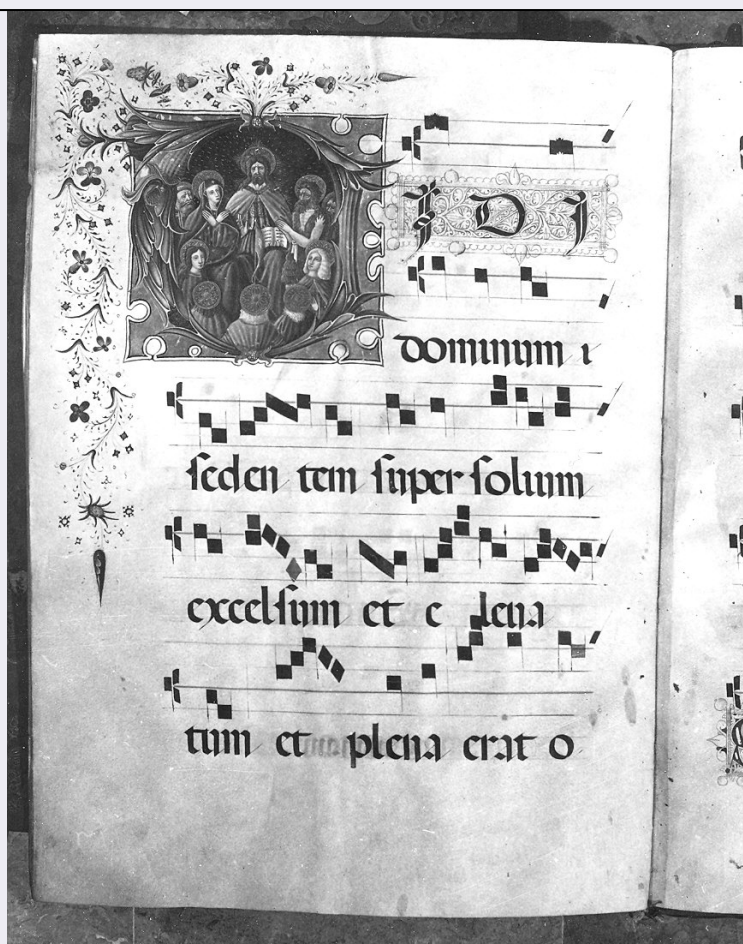 VIDI
dominum i
seden tem super solium
excelsum et e leua
tum et plena erat o